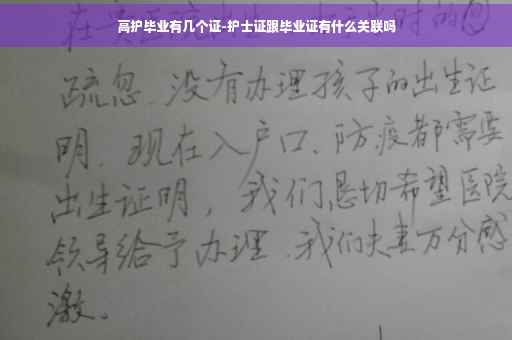 高护毕业有几个证-护士证跟毕业证有什么关联吗
疏忽、没有办理孩子的出生证
明、现在入户口、防疫都需要
出生证明，我们恳切希望医院
领导给予办理、我们夫妻万分感
激。